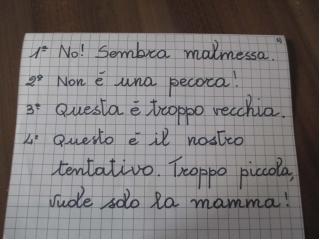 1° No! Sembra malmessa.
2° Non é una pecora!
3° Questa é troppo vecchia.
4° Questo é il nostro
tentativo. Troppo piccola,
vuole solo la mamma!